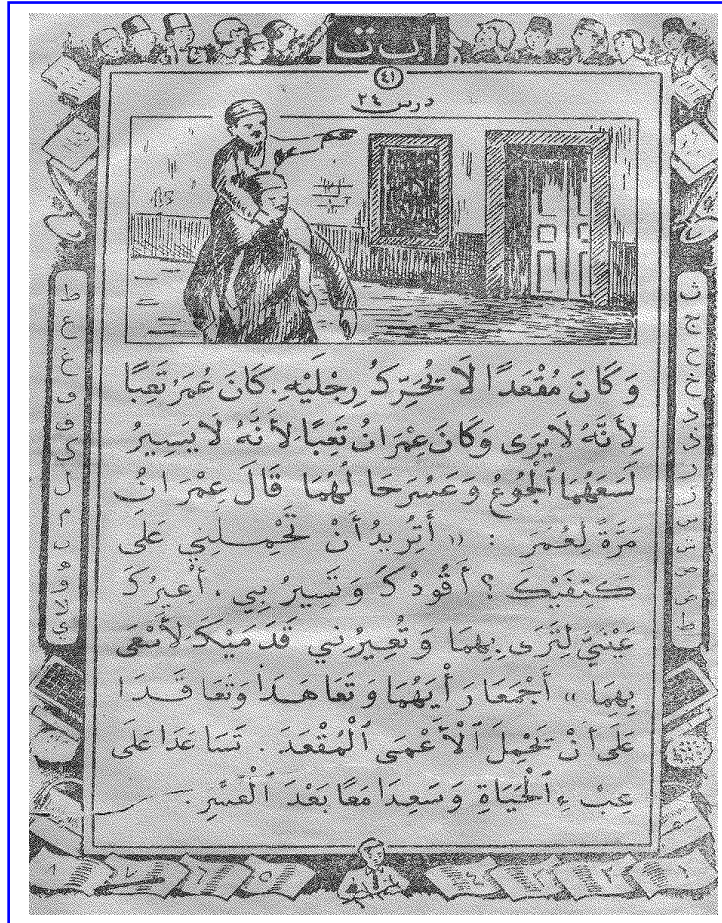 ا ب ت
٤١
درس ٢٤
وَكَانَ مُقْعَدًا لَا تُحَرِّكُ رِجْلَيْهِ. كَانَ عُمَرُ تَعِبًا
لِأَنَّهُ لَا يَرَى وَكَانَ عِمْرَانُ تَعِبًا لِأَنَّهُ لَا يَسِيرُ
لَسَعَهُمَا ٱلْجُوعُ وَعَسُرَ حَا لُهُمَا قَالَ عِمْرَانُ
مَرَّةً لِعُمَرَ : « أَتُرِيدُ أَنْ تَحْمِلَنِي عَلَى
كَتِفَيْكَ ؟ أَقُودُكَ وَتَسِيرُ بِي ، أُعِيرُكَ
عَيْنَيَّ لِتَرَى بِهِمَا وَتُعِيرُنِي قَدَمَيْكَ لِأَسْعَى
بِهِمَا » أَجْمَعَا رَأْيَهُمَا وَتَعَاهَدَا وَتَعَاقَدَا
عَلَى أَنْ يَحْمِلَ ٱلْأَعْمَى ٱلْمُقْعَدَ . تَسَاعَدَا عَلَى
عِبْءِ ٱلْحَيَاةِ وَسَعِدَا مَعًا بَعْدَ ٱلْعُسْرِ .